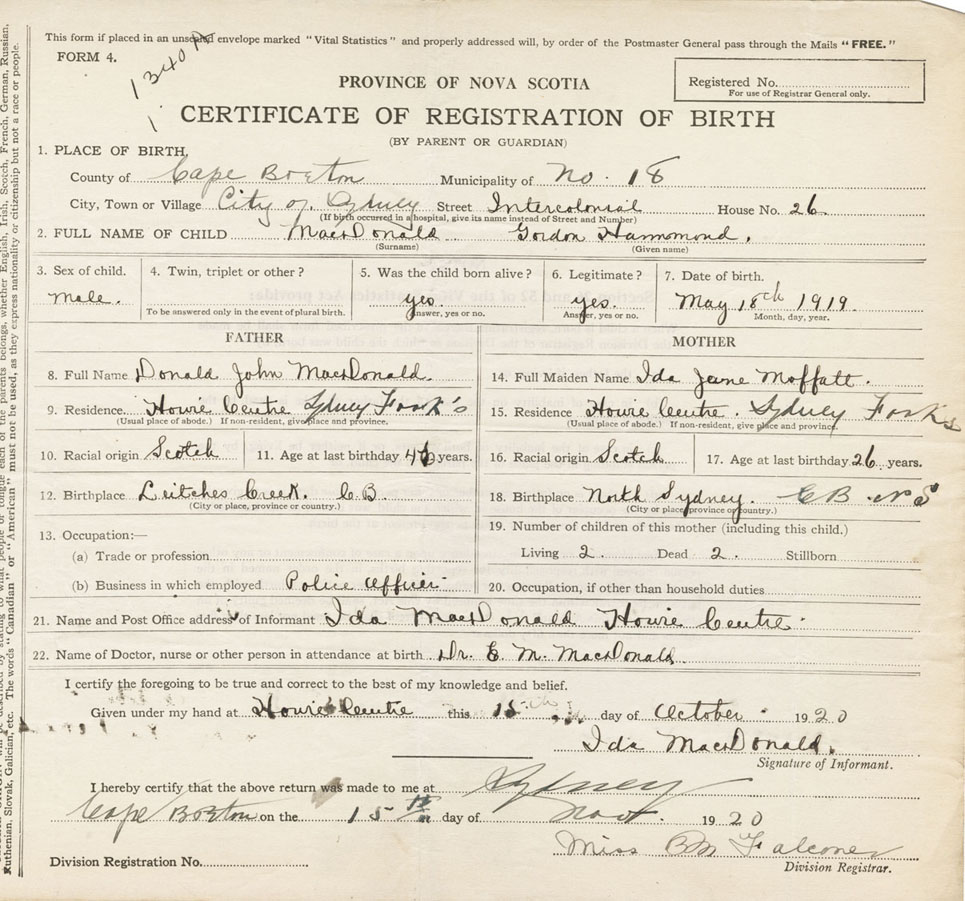 This form if placed in an unsealed envelope marked "Vital Statistics" and properly addressed will, by order of the Postmaster General pass through the Mails "FREE."
FORM 4.
1340
PROVINCE OF NOVA SCOTIA
Registered No.
For use of Registrar General only.
CERTIFICATE OF REGISTRATION OF BIRTH
(BY PARENT OR GUARDIAN)
1. PLACE OF BIRTH
County of Cape Breton Municipality of No. 18
City, Town or Village City of Sydney Street Intercolonial House No. 26
(If birth occurred in a hospital, give its name instead of Street and Number)
2. FULL NAME OF CHILD MacDonald Gordon Hammond.
(Surname) (Given name)
3. Sex of child. 4. Twin, triplet or other? 5. Was the child born alive? 6. Legitimate? 7. Date of birth.
Male. yes. yes. May 18th 1919
To be answered only in the event of plural birth. Answer, yes or no. Answer, yes or no. Month, day, year.
FATHER MOTHER
8. Full Name Donald John MacDonald. 14. Full Maiden Name Ida Jane Moffatt.
9. Residence. Howie Centre Sydney Fork's 15. Residence Howie Centre. Sydney Forks
(Usual place of abode.) If non-resident, give place and province. (Usual place of abode.) If non-resident, give place and province.
10. Racial origin Scotch 11. Age at last birthday years. 16. Racial origin Scotch 17. Age at last birthday 26 years.
12. Birthplace Leitches Creek. C.B. 18. Birthplace North Sydney. CB. NS
(City or place, province or country.) (City or place, province or country.)
13. Occupation:— 19. Number of children of this mother (including this child.)
(a) Trade or profession Living 2. Dead 2. Stillborn
(b) Business in which employed Police Officer 20. Occupation, if other than household duties
21. Name and Post Office address of Informant Ida MacDonald Howie Centre.
22. Name of Doctor, nurse or other person in attendance at birth Dr. E. M. MacDonald
I certify the foregoing to be true and correct to the best of my knowledge and belief.
Given under my hand at Howie Centre this 15th day of October 1920
Ida MacDonald.
Signature of Informant.
I hereby certify that the above return was made to me at Sydney
Cape Breton on the 15th day of 1920
Miss Falconer
Division Registration No. Division Registrar.
each of the parents belongs, whether English, Irish, Scotch, French, German, Russian,
Ruthenian, Slovak, Galician, etc. The words "Canadian" or "American" must not be used, as they express nationality or citizenship but not a race or people.